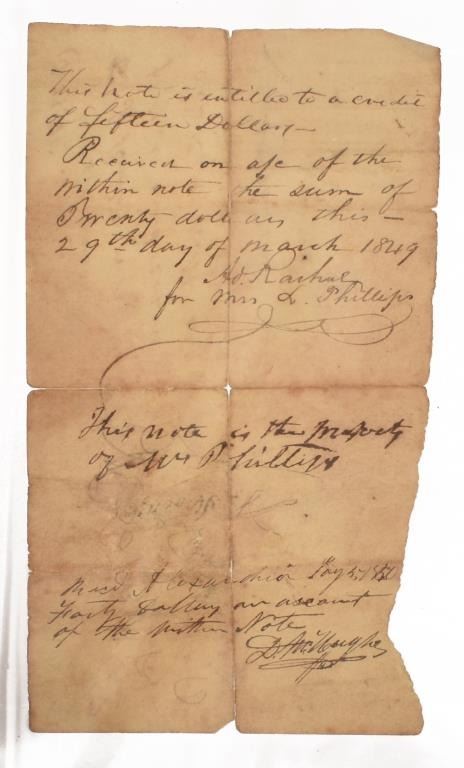 This note is intitled to a credit
of fifteen Dollars
Received on a/c of the
within note the sum of
Twenty dollars this
29th day of March 1849
for Mrs L. Phillips
This note is the property
of Mrs Phillips
Alexandria
Forty Dollars on account
of the within Note